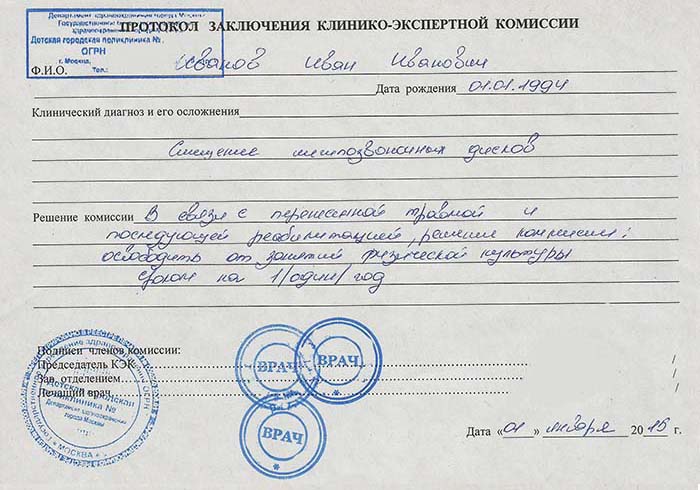 Департамент здравоохранения города Москвы
Государственное бюджетное
здравоохранения
Детская городская поликлиника №
ОГРН
г. Москва,
Тел.:
ПРОТОКОЛ ЗАКЛЮЧЕНИЯ КЛИНИКО-ЭКСПЕРТНОЙ КОМИССИИ
Ф.И.О. Иванов Иван Иванович
Дата рождения 01.01.1994
Клинический диагноз и его осложнения
Смещение межпозвоночных дисков
Решение комиссии В связи с перенесенной травмой и
последующей реабилитацией, решение комиссии:
освободить от занятий физической культуры
сроком на 1/один/ год
Подписи членов комиссии:
Председатель КЭК
Зав. отделением
Лечащий врач
ВРАЧ
ВРАЧ
ВРАЧ
Детская городская
поликлиника №
Департамент здравоохранения
города Москвы
* МОСКВА *
Дата «01» января 2015 г.